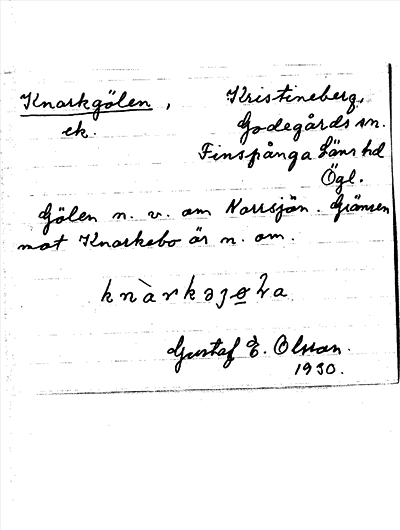 Knarkgölen, Kristineberg,
ek. Godegårds sn.
Finspånga Läns hd
Ögl.
Gölen n. v. om Norrsjön. Gränsen
mot Knarkebo är n. om.
Gustaf E. Olsson.
1930.